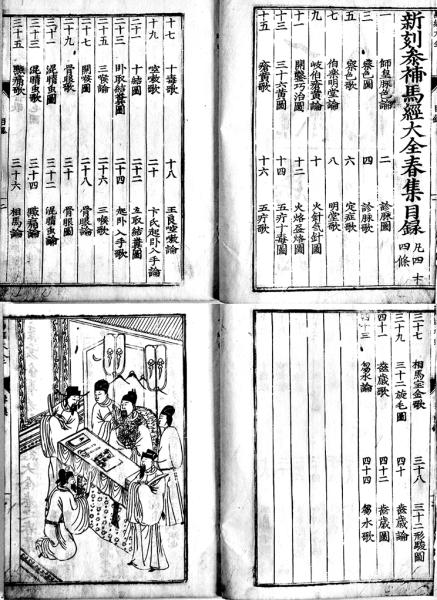 新刻參補馬經大全春集目錄 凡四十四條
一 師皇脉色論
二 診脉圖
三 察色圖
四 診脉歌
五 察色歌
六 定症歌
七 伯樂明堂論
八 明堂歌
九 岐伯瘡黃論
十 火針氣針圖
十一 開鑿巧治圖
十二 火烙蚕烙圖
十三 三十六黃圖
十四 五疔十毒圖
十五 瘡黃歌
十六 五疔歌
十七 十毒歌
十八 王良咳嗽論
十九 咳嗽歌
二十 卞氏起卧入手論
二十一 十結圖
二十二 立取結糞圖
二十三 卧取結糞圖
二十四 起卧入手歌
二十五 三喉論
二十六 三喉歌
二十七 開喉圖
二十八 骨眼論
二十九 骨眼歌
三十 骨眼圖
三十一 混睛虫圖
三十二 混睛虫論
三十三 混睛虫歌
三十四 臟痛論
三十五 臟痛歌
三十六 相馬論
三十七 相馬宝金歌
三十八 三十二形駿圖
三十九 三十二旋毛圖
四十 齒歲論
四十一 齒歲歌
四十二 齒歲圖
四十三 芻水論
四十四 芻水歌